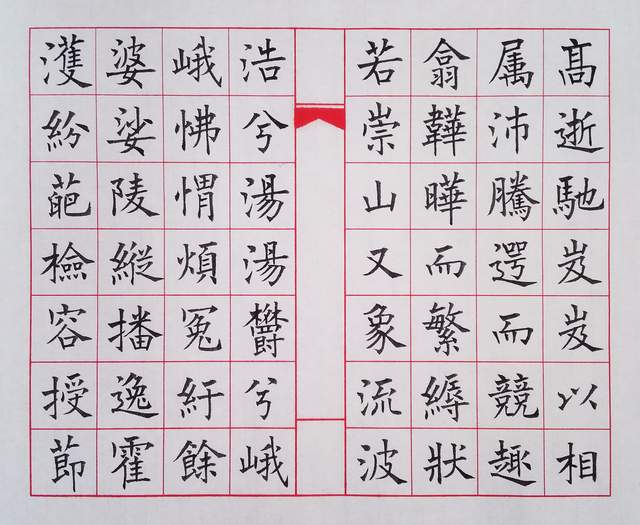 髙逝馳岌岌以相
属沛騰遌而競趣
翕韡曄而繁縟狀
若崇山又象流波
浩兮湯湯欎兮峨
峨怫愲煩冤紆餘
婆娑陵縱播逸霍
濩紛葩檢容授節